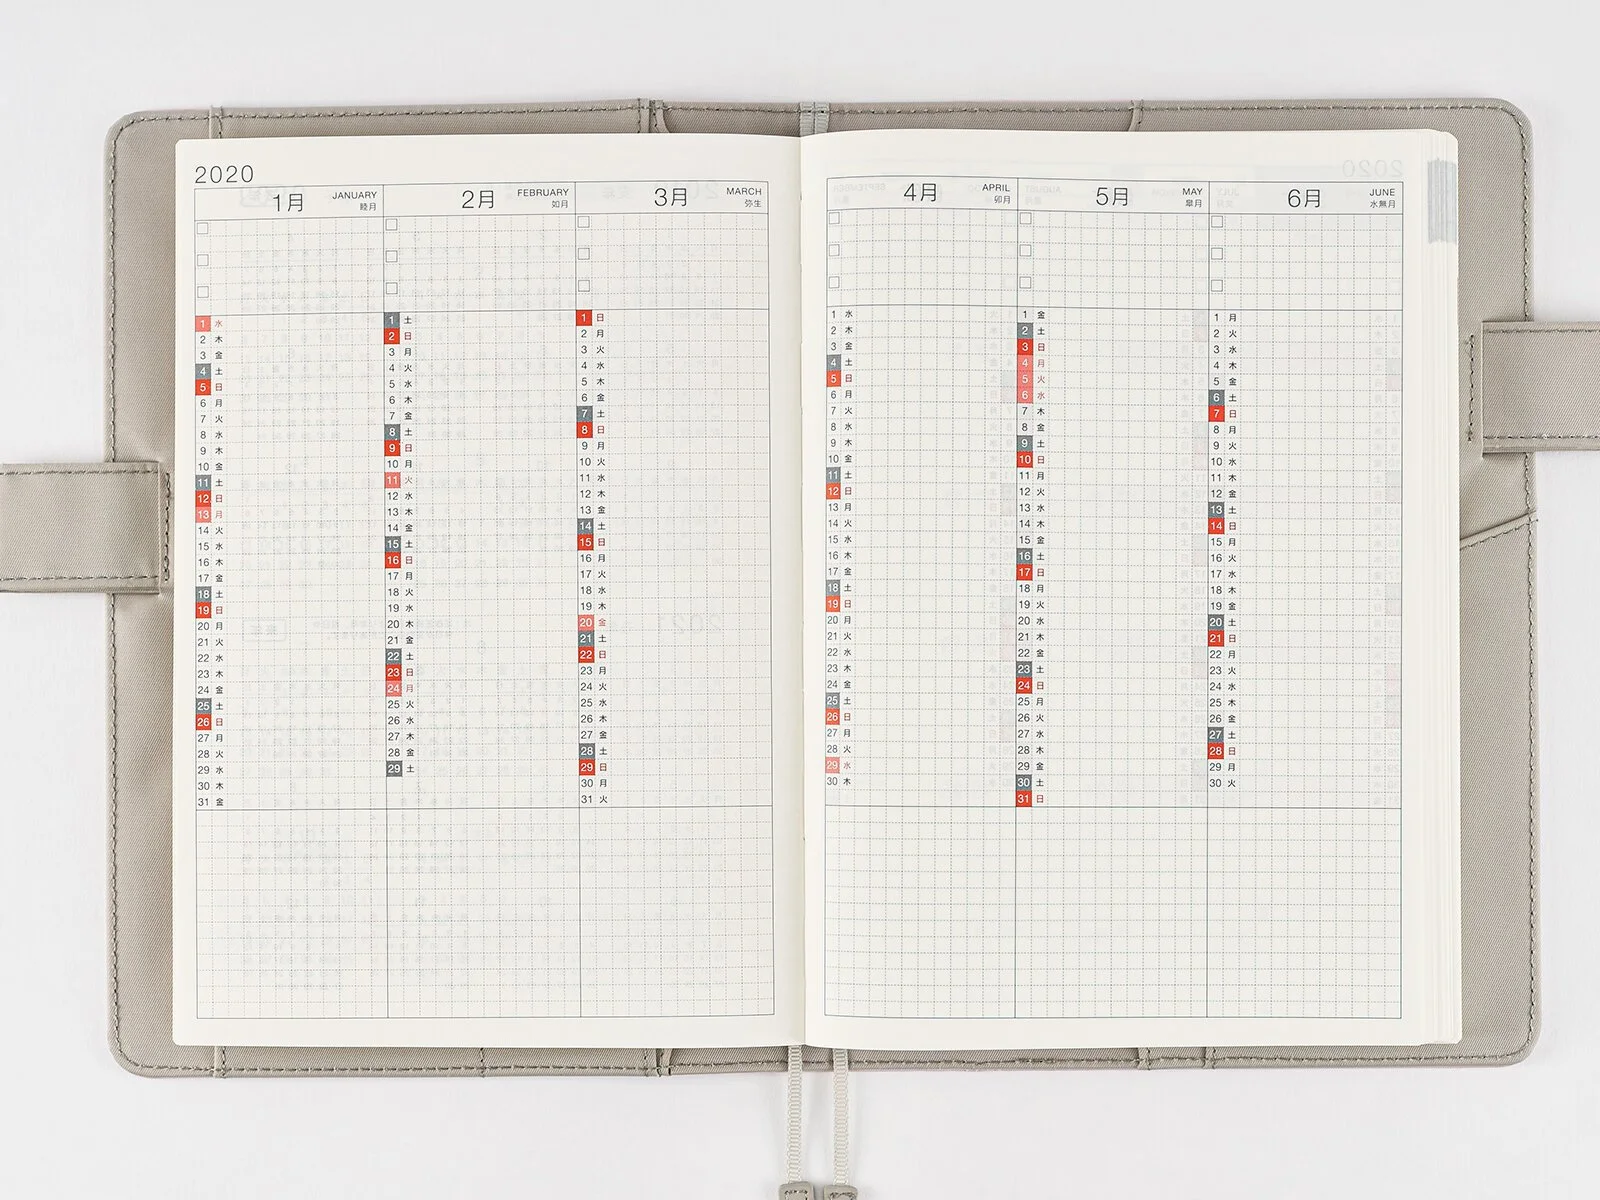 2020
1月 JANUARY 睦月
2月 FEBRUARY 如月
3月 MARCH 弥生
4月 APRIL 卯月
5月 MAY 皐月
6月 JUNE 水無月
1 水
2 木
3 金
4 土
5 日
6 月
7 火
8 水
9 木
10 金
11 土
12 日
13 月
14 火
15 水
16 木
17 金
18 土
19 日
20 月
21 火
22 水
23 木
24 金
25 土
26 日
27 月
28 火
29 水
30 木
31 金
1 土
2 日
3 月
4 火
5 水
6 木
7 金
8 土
9 日
10 月
11 火
12 水
13 木
14 金
15 土
16 日
17 月
18 火
19 水
20 木
21 金
22 土
23 日
24 月
25 火
26 水
27 木
28 金
29 土
1 日
2 月
3 火
4 水
5 木
6 金
7 土
8 日
9 月
10 火
11 水
12 木
13 金
14 土
15 日
16 月
17 火
18 水
19 木
20 金
21 土
22 日
23 月
24 火
25 水
26 木
27 金
28 土
29 日
30 月
31 火
1 水
2 木
3 金
4 土
5 日
6 月
7 火
8 水
9 木
10 金
11 土
12 日
13 月
14 火
15 水
16 木
17 金
18 土
19 日
20 月
21 火
22 水
23 木
24 金
25 土
26 日
27 月
28 火
29 水
30 木
1 金
2 土
3 日
4 月
5 火
6 水
7 木
8 金
9 土
10 日
11 月
12 火
13 水
14 木
15 金
16 土
17 日
18 月
19 火
20 水
21 木
22 金
23 土
24 日
25 月
26 火
27 水
28 木
29 金
30 土
31 日
1 月
2 火
3 水
4 木
5 金
6 土
7 日
8 月
9 火
10 水
11 木
12 金
13 土
14 日
15 月
16 火
17 水
18 木
19 金
20 土
21 日
22 月
23 火
24 水
25 木
26 金
27 土
28 日
29 月
30 火